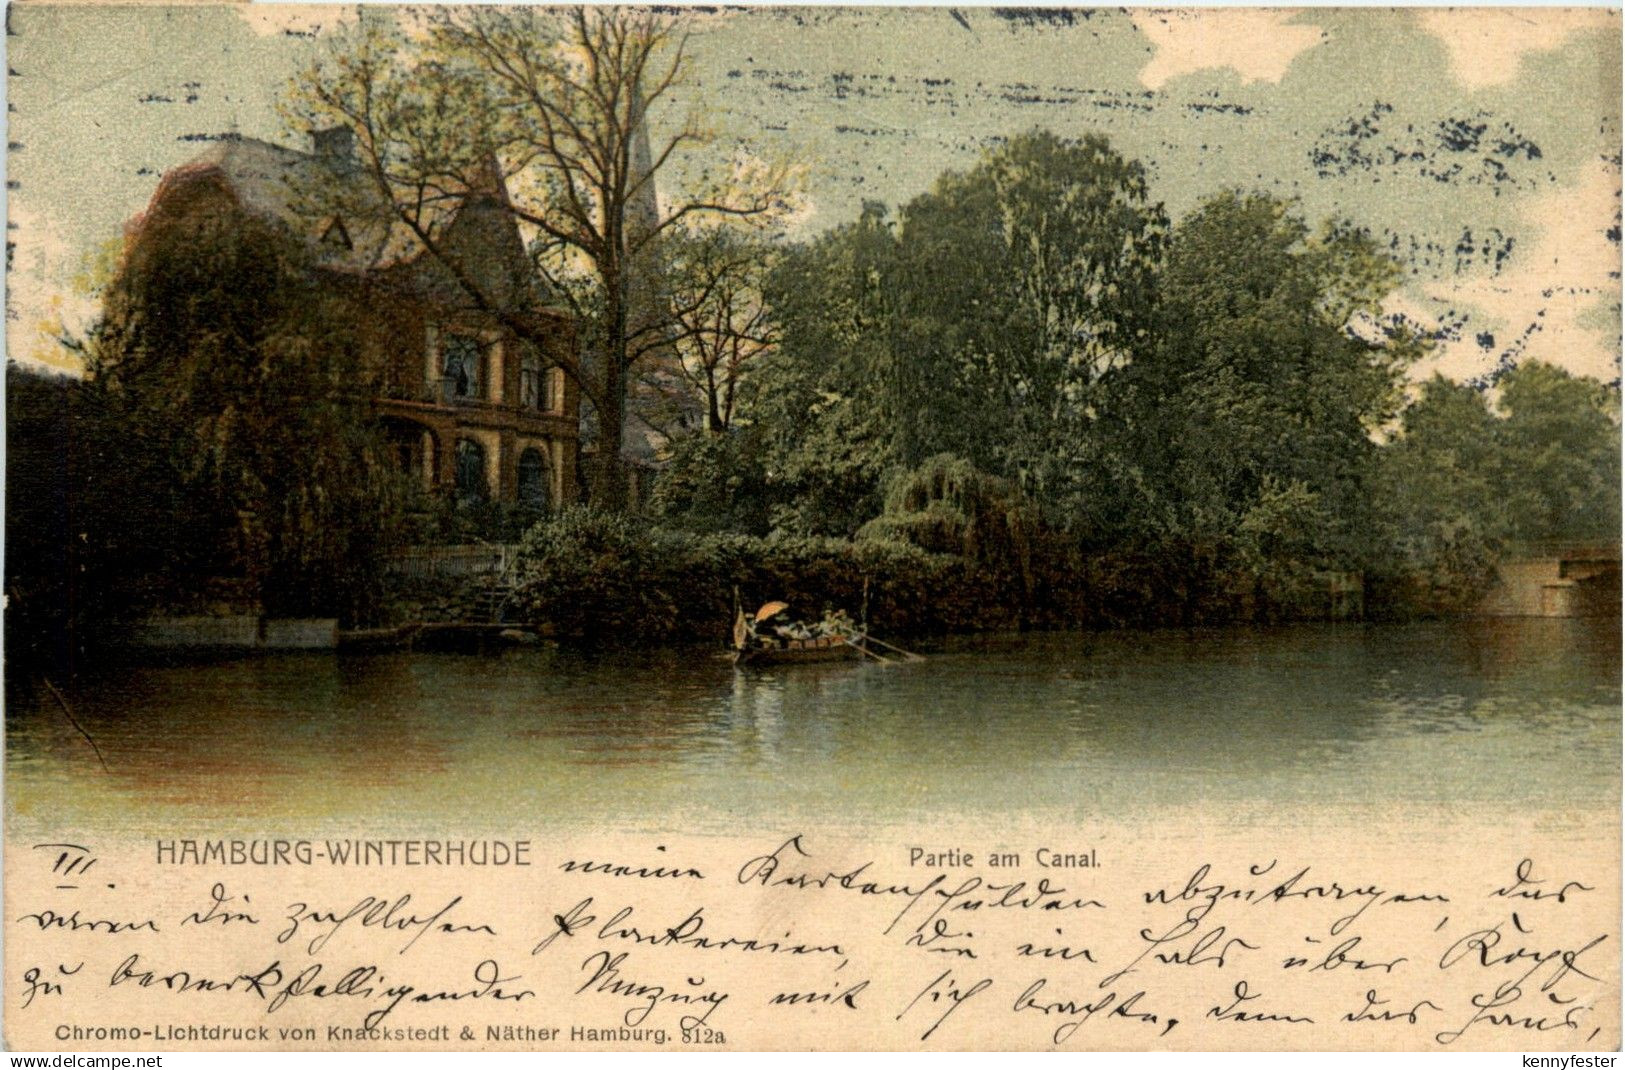 HAMBURG-WINTERHUDE
Partie am Canal.
III. meine Kartenschulden abzutragen, das
waren die zahllosen Plackereien, die ein Hals über Kopf
zu bewerkstelligender Umzug mit sich brachte, denn das Haus,
Chromo-Lichtdruck von Knackstedt & Näther Hamburg. 812a
www.delcampe.net
kennyfester